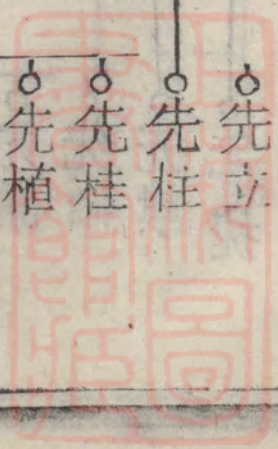 先立
先柱
先桂
先植